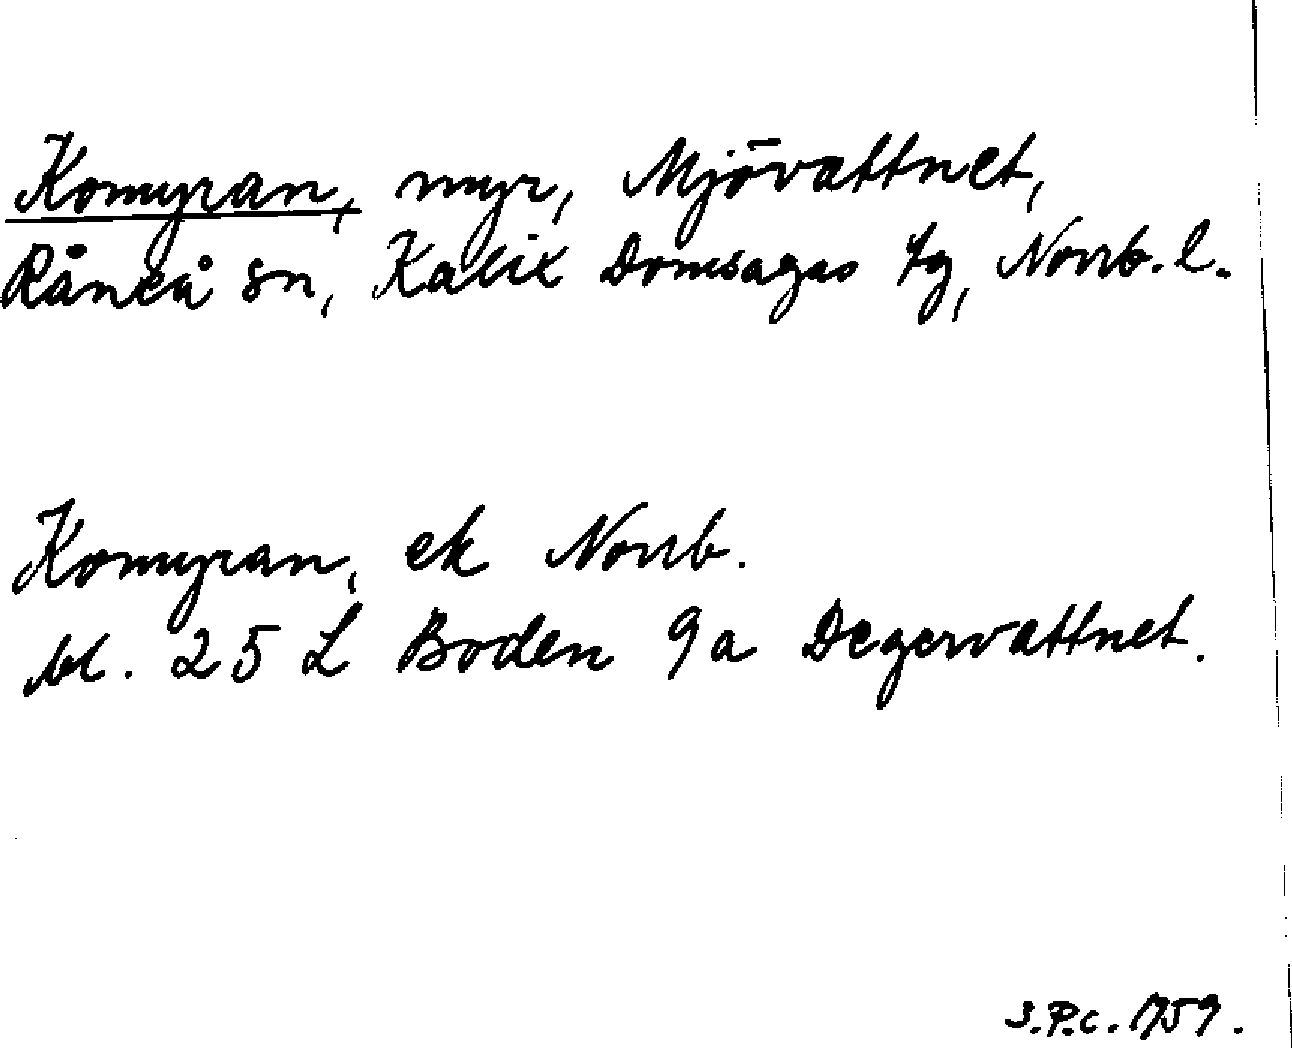 Komyran, myr, Mjövattnet,
Råneå sn, Kalix Domsagas tg, Norrb. l.
Komyran, ek Norrb.
bl. 25 L Boden 9a Degervattnet.
S.P.C. 1759.